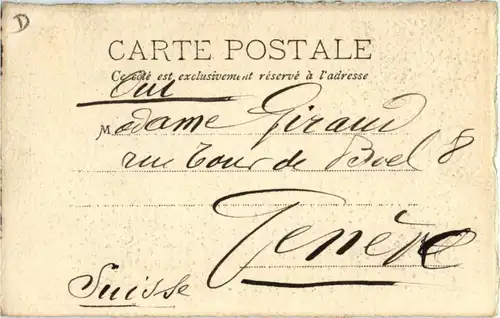 D
CARTE POSTALE
Ce côté est exclusivement réservé à l'adresse
Madame Giraud
rue Tour de Boel 8
Genève
Suisse